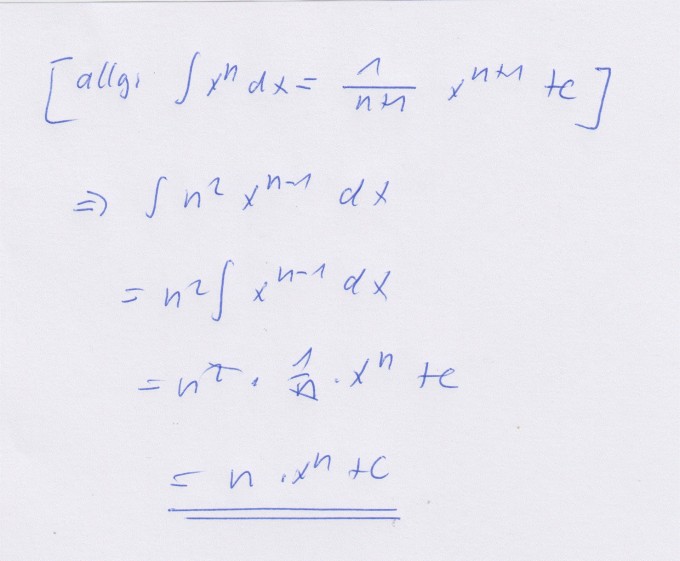 [allg. ∫ xⁿ dx = 1/(n+1) xⁿ⁺¹ + c]
⇒ ∫ n² xⁿ⁻¹ dx
= n² ∫ xⁿ⁻¹ dx
= n² · 1/n · xⁿ + c
= n · xⁿ + c